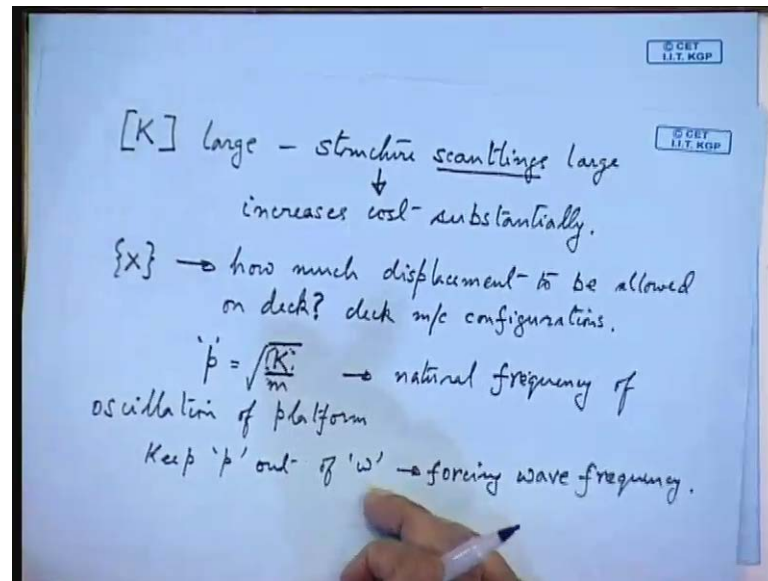 © CET
I.I.T. KGP
© CET
I.I.T. KGP
[K] large – structure scantlings large
↓
increases cost substantially.
{x} → how much displacement to be allowed
on deck? deck m/c configurations.
'p' = √(K/m) → natural frequency of
oscillation of platform
Keep 'p' out of 'ω' → forcing wave frequency.